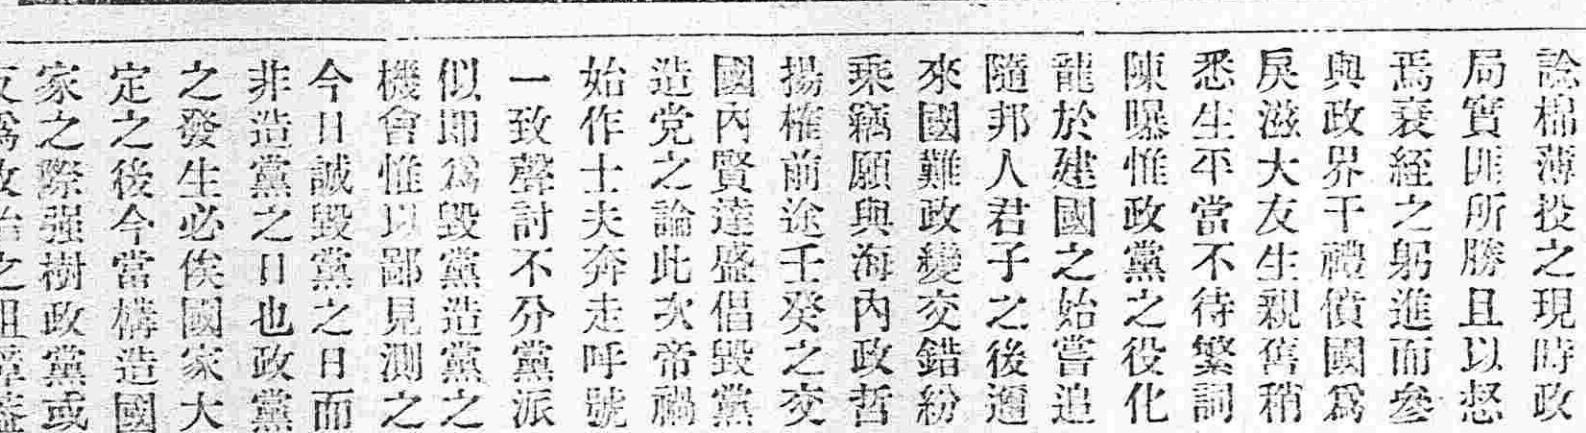 諗棉薄投之現時政
局實匪所勝且以惄
焉衰絰之躬進而參
與政界干禮僨國爲
戾滋大友生親舊稍
悉生平當不待繁詞
陳曝惟政黨之役化
龍於建國之始嘗追
隨邦人君子之後邇
來國難政變交錯紛
乘竊願與海內政哲
揚榷前途壬癸之交
國內賢達盛倡毀黨
造党之論此次帝禍
始作士夫奔走呼號
一致聲討不分黨派
似即爲毀黨造黨之
機會惟以鄙見測之
今日誠毀黨之日而
非造黨之日也政黨
之發生必俟國家大
定之後今當構造國
家之際强樹政黨或
反爲政治之阻障